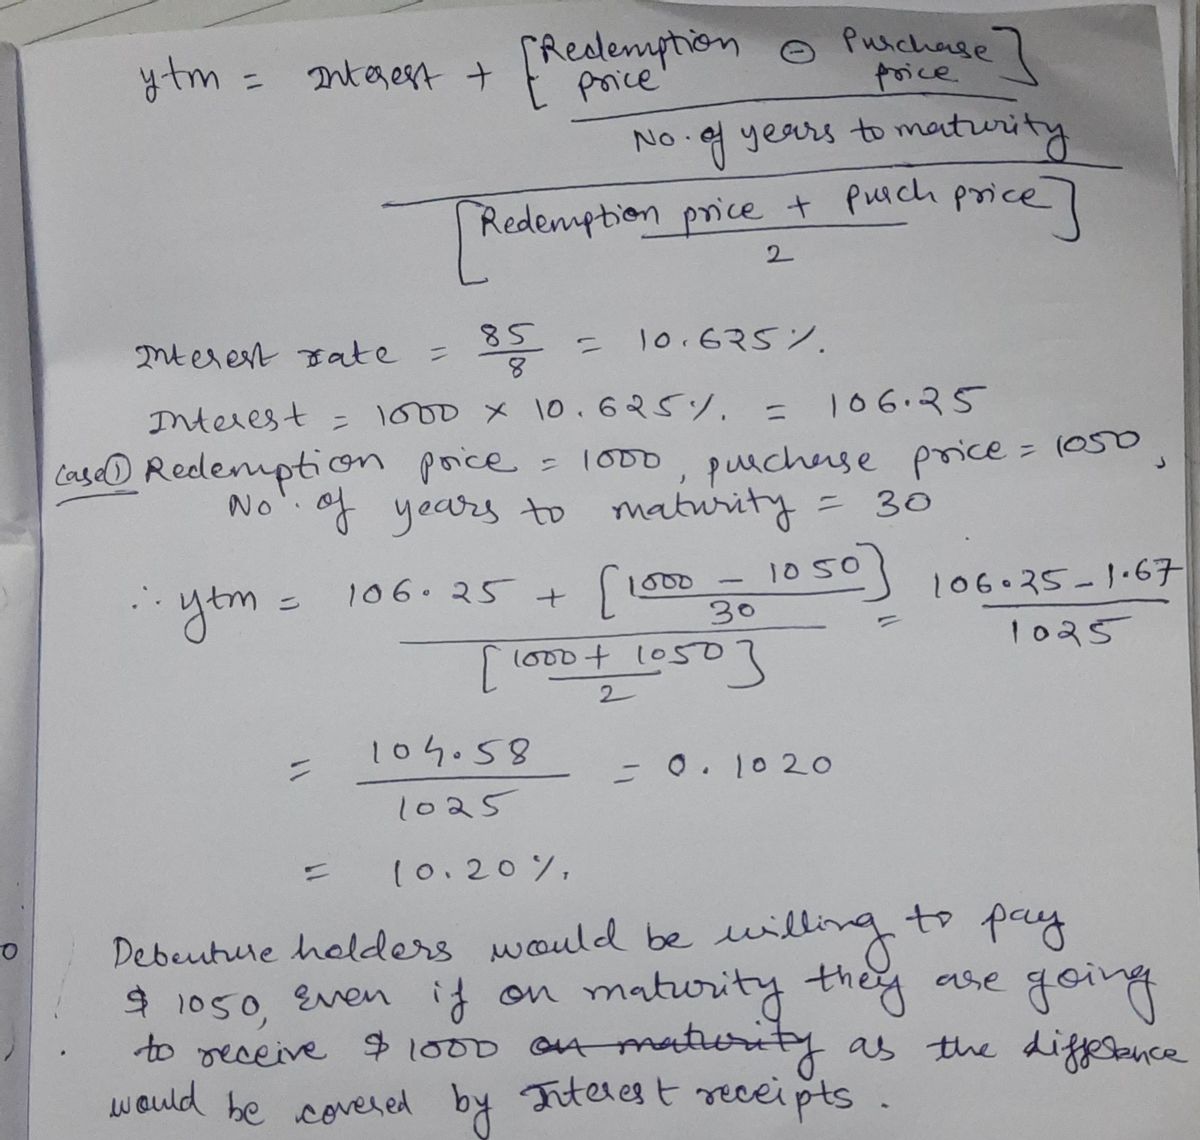 ytm = Interest + [Redemption price ⊖ Purchase price]
No. of years to maturity
[Redemption price + purch price]
2
Interest rate = 85/8 = 10.625%.
Interest = 1000 × 10.625%. = 106.25
Case① Redemption price = 1000, purchase price = 1050,
No. of years to maturity = 30
∴ ytm = 106.25 + [1000 - 1050] = 106.25 - 1.67
30 1025
[1000 + 1050]
2
= 104.58 = 0.1020
1025
= 10.20%.
Debenture holders would be willing to pay
$ 1050, Even if on maturity they are going
to receive $ 1000 on maturity as the difference
would be covered by Interest receipts.